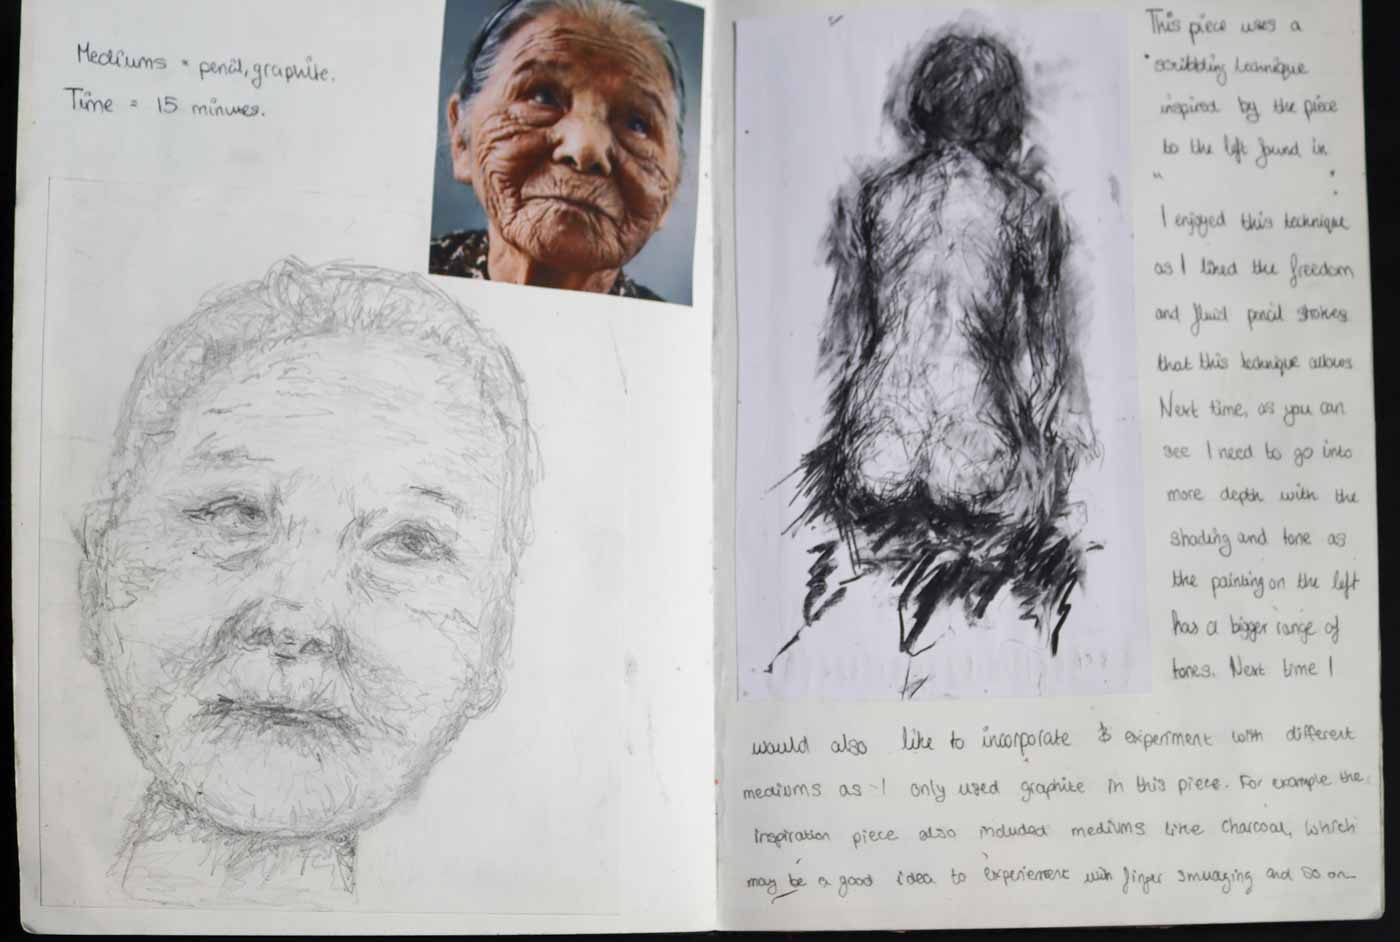 Mediums = pencil, graphite.
Time = 15 minutes.
This piece uses a
scribbling technique
inspired by the piece
to the left found in
" "
I enjoyed this technique
as I liked the freedom
and fluid pencil strokes
that this technique allows.
Next time, as you can
see I need to go into
more depth with the
shading and tone as
the painting on the left
has a bigger range of
tones. Next time I
would also like to incorporate & experiment with different
mediums as I only used graphite in this piece. For example the
inspiration piece also included mediums like charcoal, which
may be a good idea to experiement with finger smudging and so on.